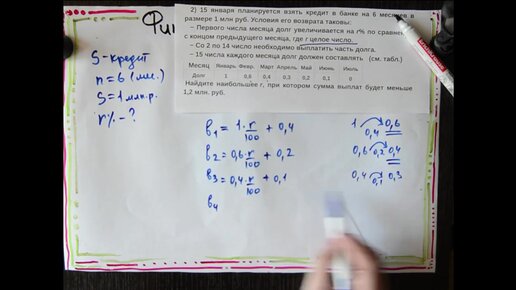 Фин
2) 15 января планируется взять кредит в банке на 6 месяцев в
размере 1 млн руб. Условия его возврата таковы:
– Первого числа месяца долг увеличивается на r% по сравнению
с концом предыдущего месяца, где r целое число.
– Со 2 по 14 число необходимо выплатить часть долга.
– 15 числа каждого месяца долг должен составлять (см. табл.)
Месяц Январь Февр. Март Апрель Май Июнь Июль
Долг 1 0,6 0,4 0,3 0,2 0,1 0
Найдите наибольшее r, при котором сумма выплат будет меньше
1,2 млн. руб.
S - кредит
n = 6 (мес.)
S = 1 млн.р.
r% - ?
b1 = 1 · r/100 + 0,4
b2 = 0,6 · r/100 + 0,2
b3 = 0,4 · r/100 + 0,1
b4
1 0,6
0,4
0,6 0,2 0,4
0,4 0,1 0,3